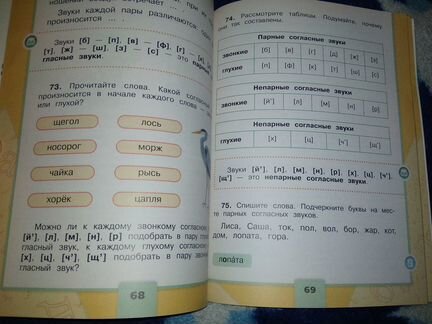 ношении
произносится ... .
Звуки каждой пары различаются
Звуки [б] — [п], [в] — [ф], [г] —
[т], [ж] — [ш], [з] — [с] — это парные
гласные звуки.
73. Прочитайте слова. Какой
произносится в начале каждого слова —
или глухой?
щегол лось
носорог морж
чайка рысь
хорёк цапля
Можно ли к каждому звонкому согласному
[й’], [л], [м], [н], [р] подобрать в пару
гласный звук, к каждому глухому
[х], [ц], [ч’], [щ’] подобрать в пару
гласный звук?
68
74. Рассмотрите таблицы. Подумайте, почему
они так составлены.
Парные согласные звуки
звонкие [б] [в] [г] [д] [ж] [з]
глухие [п] [ф] [к] [т] [ш] [с]
Непарные согласные звуки
звонкие [й’] [л] [м] [н] [р]
Непарные согласные звуки
глухие [х] [ц] [ч’] [щ’]
Звуки [й’], [л], [м], [н], [р], [х], [ц], [ч’],
[щ’] — это непарные согласные звуки.
75. Спишите слова. Подчеркните буквы на ме-
сте парных согласных звуков.
Лиса, Саша, ток, пол, вол, бор, жар, кот,
дом, лопата, гора.
лопа́та
69